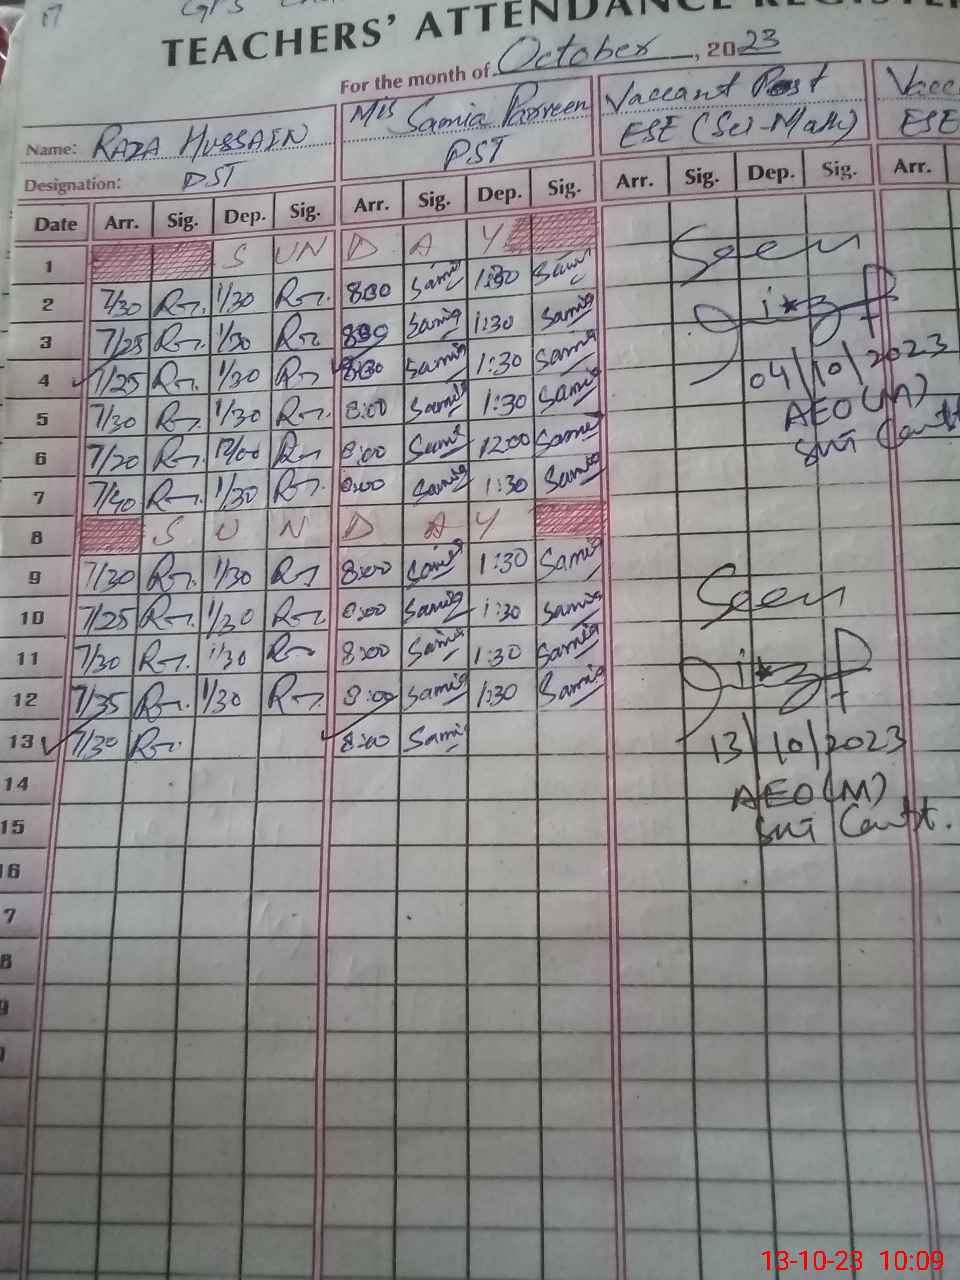 17 GPS
TEACHERS' ATTENDANCE REGISTE
For the month of October, 2023
Name: RAZA HUSSAIN Mis Samia Parveen Vaccant Post Vacc
ESE (Sci-Math) ESE
Designation: PST PST
Date Arr. Sig. Dep. Sig. Arr. Sig. Dep. Sig. Arr. Sig. Dep. Sig. Arr.
1 S UN D A Y Seen
2 7/30 1/30 8:30 Samia 1:30 Samia
3 7/25 1/30 Samia 1:30 Samia
4 7/25 1/30 8:30 Samia 1:30 Samia 04/10/2023
5 7/30 1/30 8:00 Samia 1:30 Samia AEO (M)
6 7/20 12/00 8:00 Samia 12:00 Samia Cantt
7 7/40 1/30 8:00 Samia 1:30 Samia
8 S U N D A Y
9 7/30 1/30 8:00 Samia 1:30 Samia Seen
10 7/25 1/30 8:00 Samia 1:30 Samia
11 7/30 1/30 8:00 Samia 1:30 Samia
12 7/35 1/30 8:00 Samia 1:30 Samia
13 7/30 8:00 Samia 13/10/2023
14 AEO (M)
15 Cantt.
16
7
8
9
13-10-23 10:09